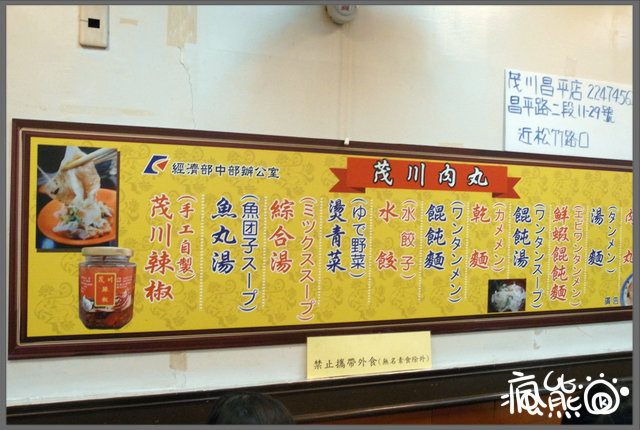 茂川昌平店 2247456
昌平路二段11-29號
近松竹路口
經濟部中部辦公室
茂川肉丸
肉丸
湯麵
(タンメン)
鮮蝦餛飩麵
(エビワンタンメン)
餛飩湯
(ワンタンスープ)
乾麵
(カメメン)
餛飩麵
(ワンタンメン)
水餃
(水餃子)
燙青菜
(ゆで野菜)
綜合湯
(ミックススープ)
魚丸湯
(魚団子スープ)
茂川辣椒
(手工自製)
茂川
辣椒
禁止攜帶外食(無名素食除外)
瘋熊